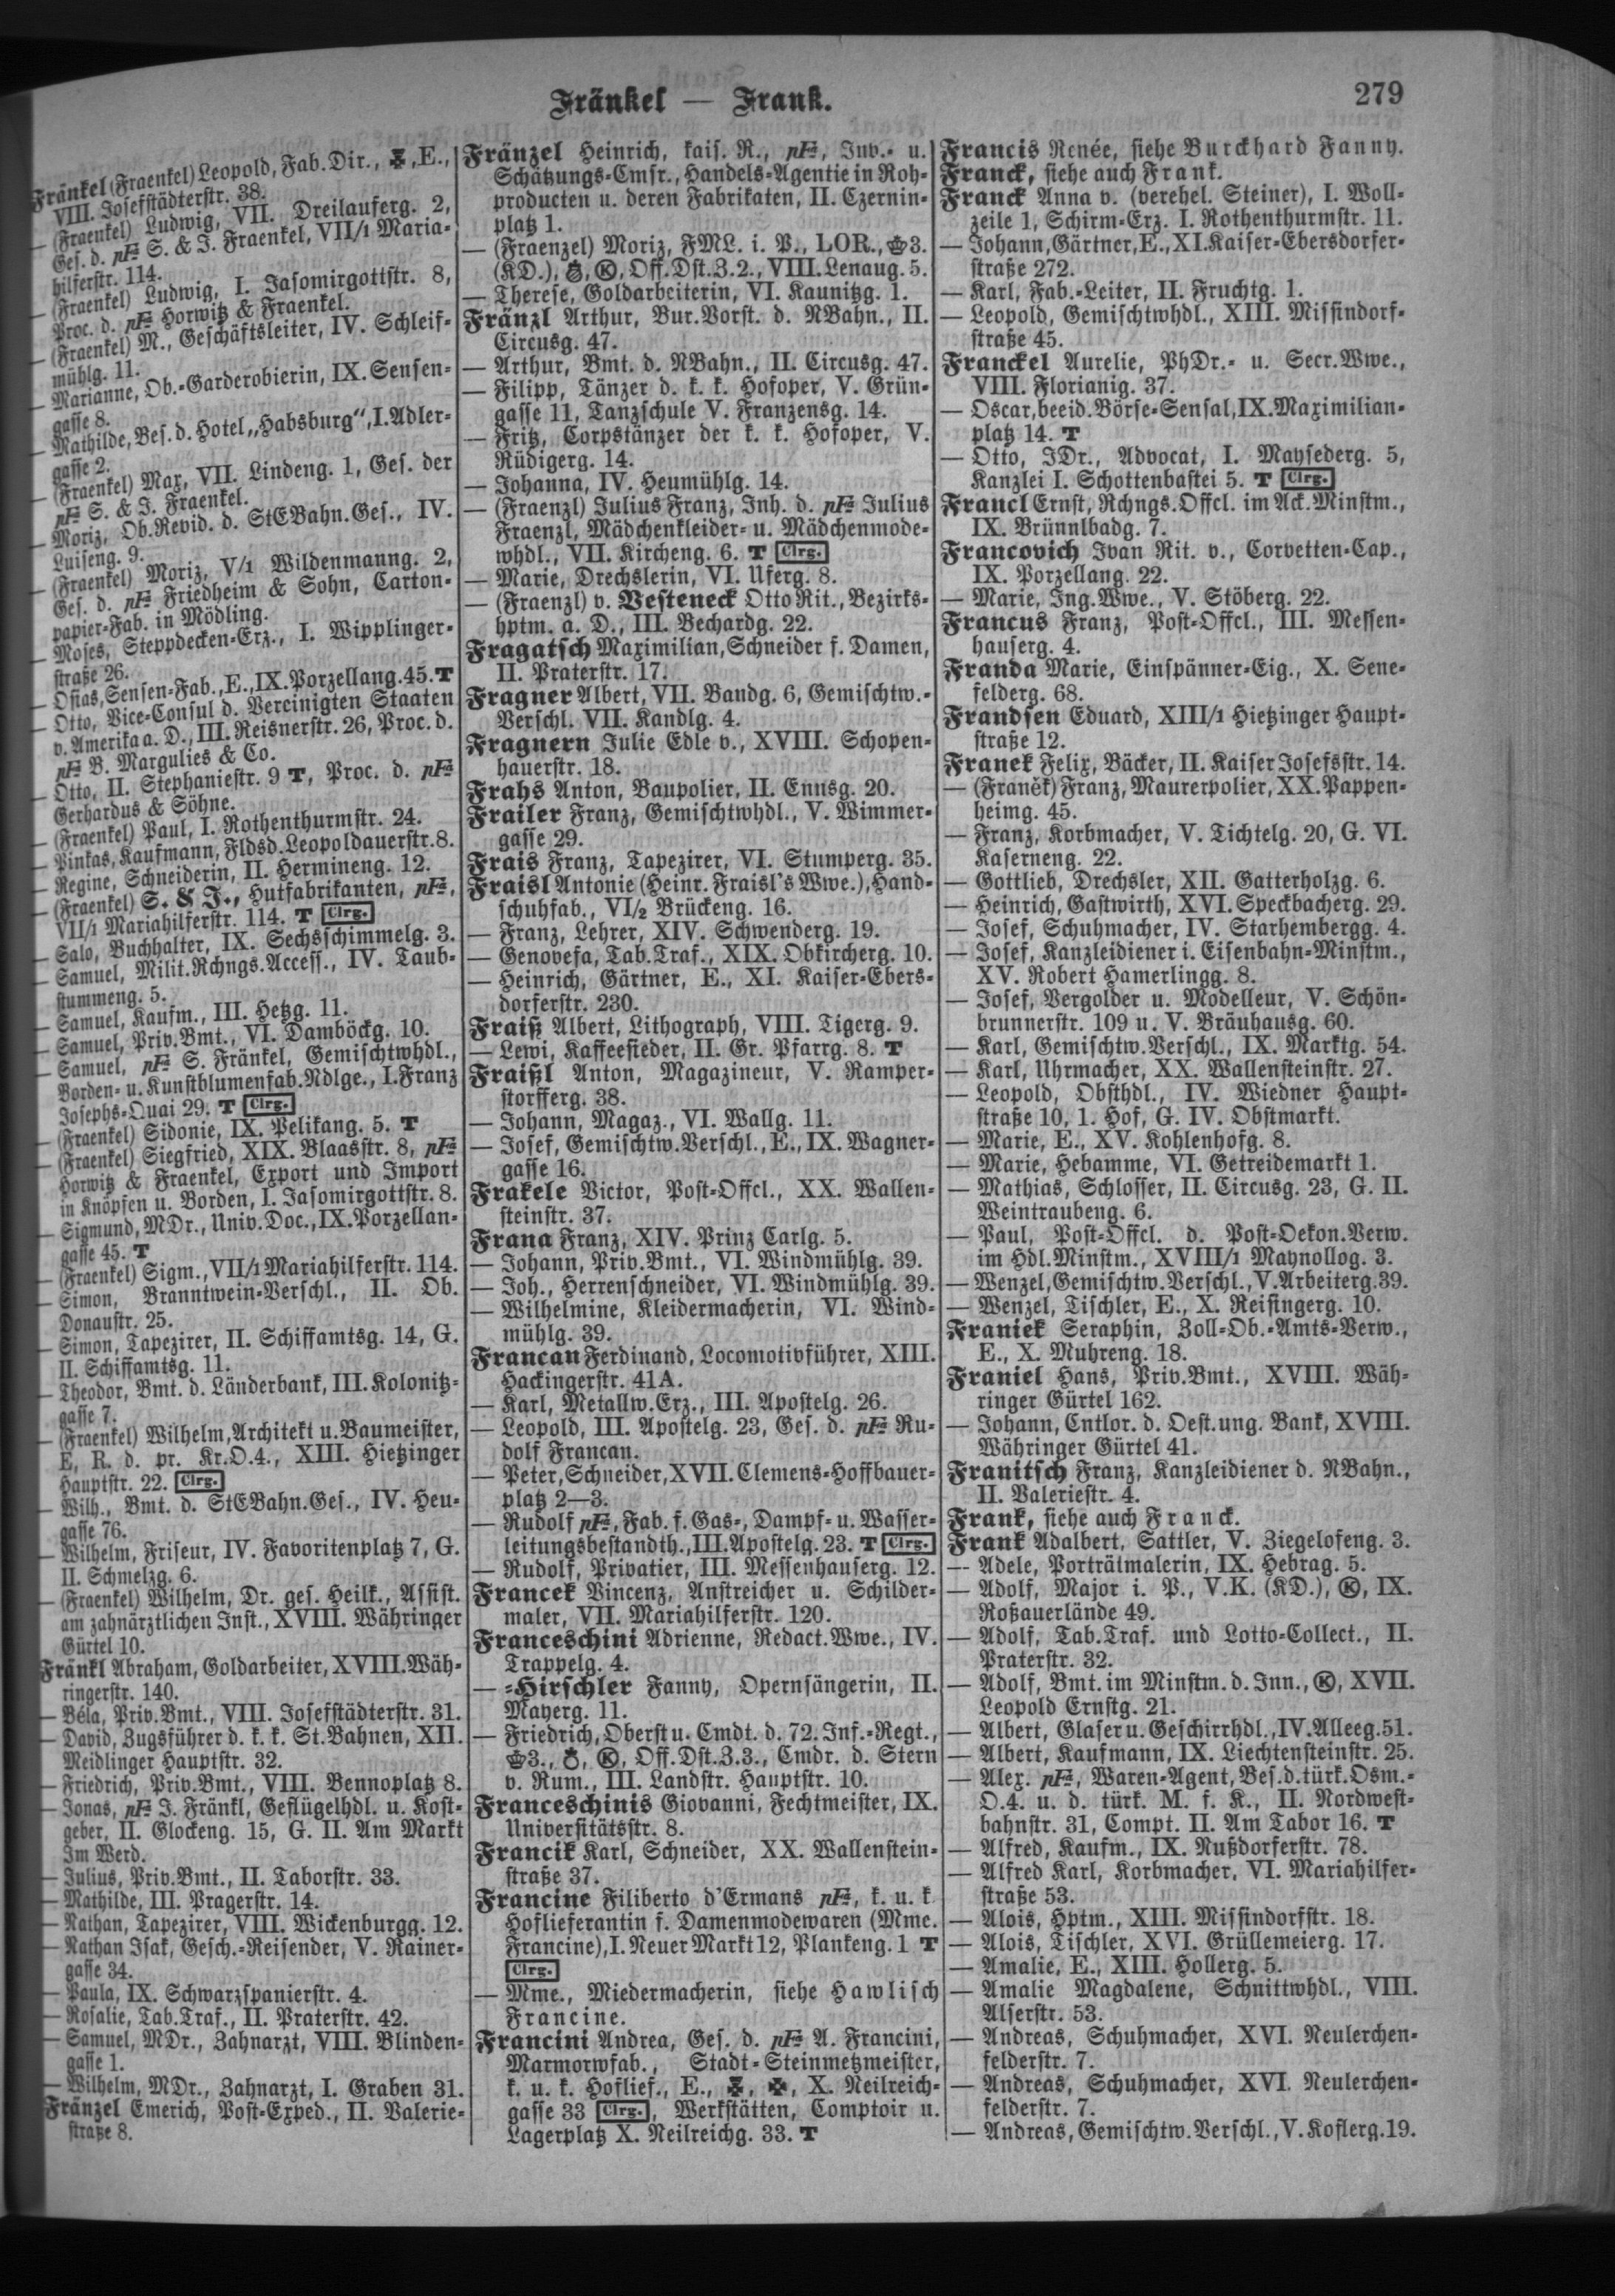 Fränkel — Frank.
279
Fränkel (Fraenkel) Leopold, Fab.Dir., E.,
VIII. Josefstädterstr. 38.
— (Fraenkel) Ludwig, VII. Dreilauferg. 2,
Ges. d. pFa S. & J. Fraenkel, VII/1 Maria-
hilferstr. 114.
— (Fraenkel) Ludwig, I. Jasomirgottstr. 8,
Proc. d. pFa Horwitz & Fraenkel.
— (Fraenkel) M., Geschäftsleiter, IV. Schleif-
mühlg. 11.
— Marianne, Ob.-Garderobierin, IX. Sensen-
gasse 8.
— Mathilde, Bes. d. Hotel „Habsburg“, I. Adler-
gasse 2.
— (Fraenkel) Max, VII. Lindeng. 1, Ges. der
pFa S. & J. Fraenkel.
— Moriz, Ob.Revid. d. StEBahn.Ges., IV.
Luiseng. 9.
— (Fraenkel) Moriz, V/1 Wildenmanng. 2,
Ges. d. pFa Friedheim & Sohn, Carton-
papier-Fab. in Mödling.
— Moses, Steppdecken-Erz., I. Wipplinger-
straße 26.
— Osias, Sensen-Fab., E., IX. Porzellang. 45. T
— Otto, Vice-Consul d. Vereinigten Staaten
v. Amerika a. D., III. Reisnerstr. 26, Proc. d.
pFa B. Margulies & Co.
— Otto, II. Stephaniestr. 9 T, Proc. d. pFa
Gerhardus & Söhne.
— (Fraenkel) Paul, I. Rothenthurmstr. 24.
— Pinkas, Kaufmann, Fldsd. Leopoldauerstr. 8.
— Regine, Schneiderin, II. Hermineng. 12.
— (Fraenkel) S. & J., Hutfabrikanten, pFa,
VII/1 Mariahilferstr. 114. T Clrg.
— Salo, Buchhalter, IX. Sechsschimmelg. 3.
— Samuel, Milit.Rchngs.Access., IV. Taub-
stummeng. 5.
— Samuel, Kaufm., III. Hetzg. 11.
— Samuel, Priv.Bmt., VI. Damböckg. 10.
— Samuel, pFa S. Fränkel, Gemischtwhdl.,
Borden- u. Kunstblumenfab.Ndlge., I. Franz
Josephs-Quai 29. T Clrg.
— (Fraenkel) Sidonie, IX. Pelikang. 5. T
— (Fraenkel) Siegfried, XIX. Blaasstr. 8, pFa
Horwitz & Fraenkel, Export und Import
in Knöpfen u. Borden, I. Jasomirgottstr. 8.
— Sigmund, MDr., Univ.Doc., IX. Porzellan-
gasse 45. T
— (Fraenkel) Sigm., VII/1 Mariahilferstr. 114.
— Simon, Branntwein-Verschl., II. Ob.
Donaustr. 25.
— Simon, Tapezirer, II. Schiffamtsg. 14, G.
II. Schiffamtsg. 11.
— Theodor, Bmt. d. Länderbank, III. Kolonitz-
gasse 7.
— (Fraenkel) Wilhelm, Architekt u. Baumeister,
E, R. d. pr. Kr.O.4., XIII. Hietzinger
Hauptstr. 22. Clrg.
— Wilh., Bmt. d. StEBahn.Ges., IV. Heu-
gasse 76.
— Wilhelm, Friseur, IV. Favoritenplatz 7, G.
II. Schmelzg. 6.
— (Fraenkel) Wilhelm, Dr. ges. Heilk., Assist.
am zahnärztlichen Inst., XVIII. Währinger
Gürtel 10.
Fränkl Abraham, Goldarbeiter, XVIII. Wäh-
ringerstr. 140.
— Béla, Priv.Bmt., VIII. Josefstädterstr. 31.
— David, Zugsführer d. k. k. St.Bahnen, XII.
Meidlinger Hauptstr. 32.
— Friedrich, Priv.Bmt., VIII. Bennoplatz 8.
— Jonas, pFa J. Fränkl, Geflügelhdl. u. Kost-
geber, II. Glockeng. 15, G. II. Am Markt
Im Werd.
— Julius, Priv.Bmt., II. Taborstr. 33.
— Mathilde, III. Pragerstr. 14.
— Nathan, Tapezirer, VIII. Wickenburgg. 12.
— Nathan Isak, Gesch.-Reisender, V. Rainer-
gasse 34.
— Paula, IX. Schwarzspanierstr. 4.
— Rosalie, Tab.Traf., II. Praterstr. 42.
— Samuel, MDr., Zahnarzt, VIII. Blinden-
gasse 1.
— Wilhelm, MDr., Zahnarzt, I. Graben 31.
Fränzel Emerich, Post-Exped., II. Valerie-
straße 8.
Fränzel Heinrich, kais. R., pFa, Inv.- u.
Schätzungs-Cmsr., Handels-Agentie in Roh-
producten u. deren Fabrikaten, II. Czernin-
platz 1.
— (Fraenzel) Moriz, FML. i. P., LOR., 3.
(KD.), K, Off.Dst.Z.2., VIII. Lenaug. 5.
— Therese, Goldarbeiterin, VI. Kaunitzg. 1.
Fränzl Arthur, Bur.Vorst. d. NBahn., II.
Circusg. 47.
— Arthur, Bmt. d. NBahn., II. Circusg. 47.
— Filipp, Tänzer d. k. k. Hofoper, V. Grün-
gasse 11, Tanzschule V. Franzensg. 14.
— Fritz, Corpstänzer der k. k. Hofoper, V.
Rüdigerg. 14.
— Johanna, IV. Heumühlg. 14.
— (Fraenzl) Julius Franz, Inh. d. pFa Julius
Fraenzl, Mädchenkleider- u. Mädchenmode-
whdl., VII. Kircheng. 6. T Clrg.
— Marie, Drechslerin, VI. Uferg. 8.
— (Fraenzl) v. Vesteneck Otto Rit., Bezirks-
hptm. a. D., III. Bechardg. 22.
Fragatsch Maximilian, Schneider f. Damen,
II. Praterstr. 17.
Fragner Albert, VII. Bandg. 6, Gemischtw.-
Verschl. VII. Kandlg. 4.
Fragnern Julie Edle v., XVIII. Schopen-
hauerstr. 18.
Frahs Anton, Baupolier, II. Ennsg. 20.
Frailer Franz, Gemischtwhdl., V. Wimmer-
gasse 29.
Frais Franz, Tapezirer, VI. Stumperg. 35.
Fraisl Antonie (Heinr. Fraisl's Wwe.), Hand-
schuhfab., VI/2 Brückeng. 16.
— Franz, Lehrer, XIV. Schwenderg. 19.
— Genovefa, Tab.Traf., XIX. Obkircherg. 10.
— Heinrich, Gärtner, E., XI. Kaiser-Ebers-
dorferstr. 230.
Fraiß Albert, Lithograph, VIII. Tigerg. 9.
— Lewi, Kaffeesieder, II. Gr. Pfarrg. 8. T
Fraißl Anton, Magazineur, V. Ramper-
storfferg. 38.
— Johann, Magaz., VI. Wallg. 11.
— Josef, Gemischtw.Verschl., E., IX. Wagner-
gasse 16.
Frakele Victor, Post-Offcl., XX. Wallen-
steinstr. 37.
Frana Franz, XIV. Prinz Carlg. 5.
— Johann, Priv.Bmt., VI. Windmühlg. 39.
— Joh., Herrenschneider, VI. Windmühlg. 39.
— Wilhelmine, Kleidermacherin, VI. Wind-
mühlg. 39.
Francan Ferdinand, Locomotivführer, XIII.
Hackingerstr. 41A.
— Karl, Metallw.Erz., III. Apostelg. 26.
— Leopold, III. Apostelg. 23, Ges. d. pFa Ru-
dolf Francan.
— Peter, Schneider, XVII. Clemens-Hoffbauer-
platz 2—3.
— Rudolf pFa, Fab. f. Gas-, Dampf- u. Wasser-
leitungsbestandth., III. Apostelg. 23. T Clrg.
— Rudolf, Privatier, III. Messenhauserg. 12.
Francek Vincenz, Anstreicher u. Schilder-
maler, VII. Mariahilferstr. 120.
Franceschini Adrienne, Redact.Wwe., IV.
Trappelg. 4.
— -Hirschler Fanny, Opernsängerin, II.
Mayerg. 11.
— Friedrich, Oberst u. Cmdt. d. 72. Inf.-Regt.,
3., K, Off.Dst.Z.3., Cmdr. d. Stern
v. Rum., III. Landstr. Hauptstr. 10.
Franceschinis Giovanni, Fechtmeister, IX.
Universitätsstr. 8.
Francik Karl, Schneider, XX. Wallenstein-
straße 37.
Francine Filiberto d'Ermans pFa, k. u. k
Hoflieferantin f. Damenmodewaren (Mme.
Francine), I. Neuer Markt 12, Plankeng. 1 T
Clrg.
— Mme., Miedermacherin, siehe Hawlisch
Francine.
Francini Andrea, Ges. d. pFa A. Francini,
Marmorwfab., Stadt-Steinmetzmeister,
k. u. k. Hoflief., E., X. Neilreich-
gasse 33 Clrg., Werkstätten, Comptoir u.
Lagerplatz X. Neilreichg. 33. T
Francis Renée, siehe Burckhard Fanny.
Franck, siehe auch Frank.
Franck Anna v. (verehel. Steiner), I. Woll-
zeile 1, Schirm-Erz. I. Rothenthurmstr. 11.
— Johann, Gärtner, E., XI. Kaiser-Ebersdorfer-
straße 272.
— Karl, Fab.-Leiter, II. Fruchtg. 1.
— Leopold, Gemischtwhdl., XIII. Missindorf-
straße 45.
Franckel Aurelie, PhDr.- u. Secr.Wwe.,
VIII. Florianig. 37.
— Oscar, beeid. Börse-Sensal, IX. Maximilian-
platz 14. T
— Otto, JDr., Advocat, I. Maysederg. 5,
Kanzlei I. Schottenbastei 5. T Clrg.
Francl Ernst, Rchngs.Offcl. im Ack.Minstm.,
IX. Brünnlbadg. 7.
Francovich Ivan Rit. v., Corvetten-Cap.,
IX. Porzellang. 22.
— Marie, Ing.Wwe., V. Stöberg. 22.
Francus Franz, Post-Offcl., III. Messen-
hauserg. 4.
Franda Marie, Einspänner-Eig., X. Sene-
felderg. 68.
Frandsen Eduard, XIII/1 Hietzinger Haupt-
straße 12.
Franek Felix, Bäcker, II. Kaiser Josefsstr. 14.
— (Franěk) Franz, Maurerpolier, XX. Pappen-
heimg. 45.
— Franz, Korbmacher, V. Tichtelg. 20, G. VI.
Kaserneng. 22.
— Gottlieb, Drechsler, XII. Gatterholzg. 6.
— Heinrich, Gastwirth, XVI. Speckbacherg. 29.
— Josef, Schuhmacher, IV. Starhembergg. 4.
— Josef, Kanzleidiener i. Eisenbahn-Minstm.,
XV. Robert Hamerlingg. 8.
— Josef, Vergolder u. Modelleur, V. Schön-
brunnerstr. 109 u. V. Bräuhausg. 60.
— Karl, Gemischtw.Verschl., IX. Marktg. 54.
— Karl, Uhrmacher, XX. Wallensteinstr. 27.
— Leopold, Obsthdl., IV. Wiedner Haupt-
straße 10, 1. Hof, G. IV. Obstmarkt.
— Marie, E., XV. Kohlenhofg. 8.
— Marie, Hebamme, VI. Getreidemarkt 1.
— Mathias, Schlosser, II. Circusg. 23, G. II.
Weintraubeng. 6.
— Paul, Post-Offcl. d. Post-Oekon.Verw.
im Hdl.Minstm., XVIII/1 Maynollog. 3.
— Wenzel, Gemischtw.Verschl., V. Arbeiterg. 39.
— Wenzel, Tischler, E., X. Reisingerg. 10.
Franiek Seraphin, Zoll-Ob.-Amts-Verw.,
E., X. Muhreng. 18.
Franiel Hans, Priv.Bmt., XVIII. Wäh-
ringer Gürtel 162.
— Johann, Cntlor. d. Oest.ung. Bank, XVIII.
Währinger Gürtel 41.
Franitsch Franz, Kanzleidiener d. NBahn.,
II. Valeriestr. 4.
Frank, siehe auch Franck.
Frank Adalbert, Sattler, V. Ziegelofeng. 3.
— Adele, Porträtmalerin, IX. Hebrag. 5.
— Adolf, Major i. P., V.K. (KD.), K, IX.
Roßauerlände 49.
— Adolf, Tab.Traf. und Lotto-Collect., II.
Praterstr. 32.
— Adolf, Bmt. im Minstm. d. Inn., K, XVII.
Leopold Ernstg. 21.
— Albert, Glaser u. Geschirrhdl., IV. Alleeg. 51.
— Albert, Kaufmann, IX. Liechtensteinstr. 25.
— Alex. pFa, Waren-Agent, Bes. d. türk. Osm.-
O.4. u. d. türk. M. f. K., II. Nordwest-
bahnstr. 31, Compt. II. Am Tabor 16. T
— Alfred, Kaufm., IX. Nußdorferstr. 78.
— Alfred Karl, Korbmacher, VI. Mariahilfer-
straße 53.
— Alois, Hptm., XIII. Missindorfstr. 18.
— Alois, Tischler, XVI. Grüllemeierg. 17.
— Amalie, E., XIII. Hollerg. 5.
— Amalie Magdalene, Schnittwhdl., VIII.
Alserstr. 53.
— Andreas, Schuhmacher, XVI. Neulerchen-
felderstr. 7.
— Andreas, Schuhmacher, XVI. Neulerchen-
felderstr. 7.
— Andreas, Gemischtw.Verschl., V. Koflerg. 19.